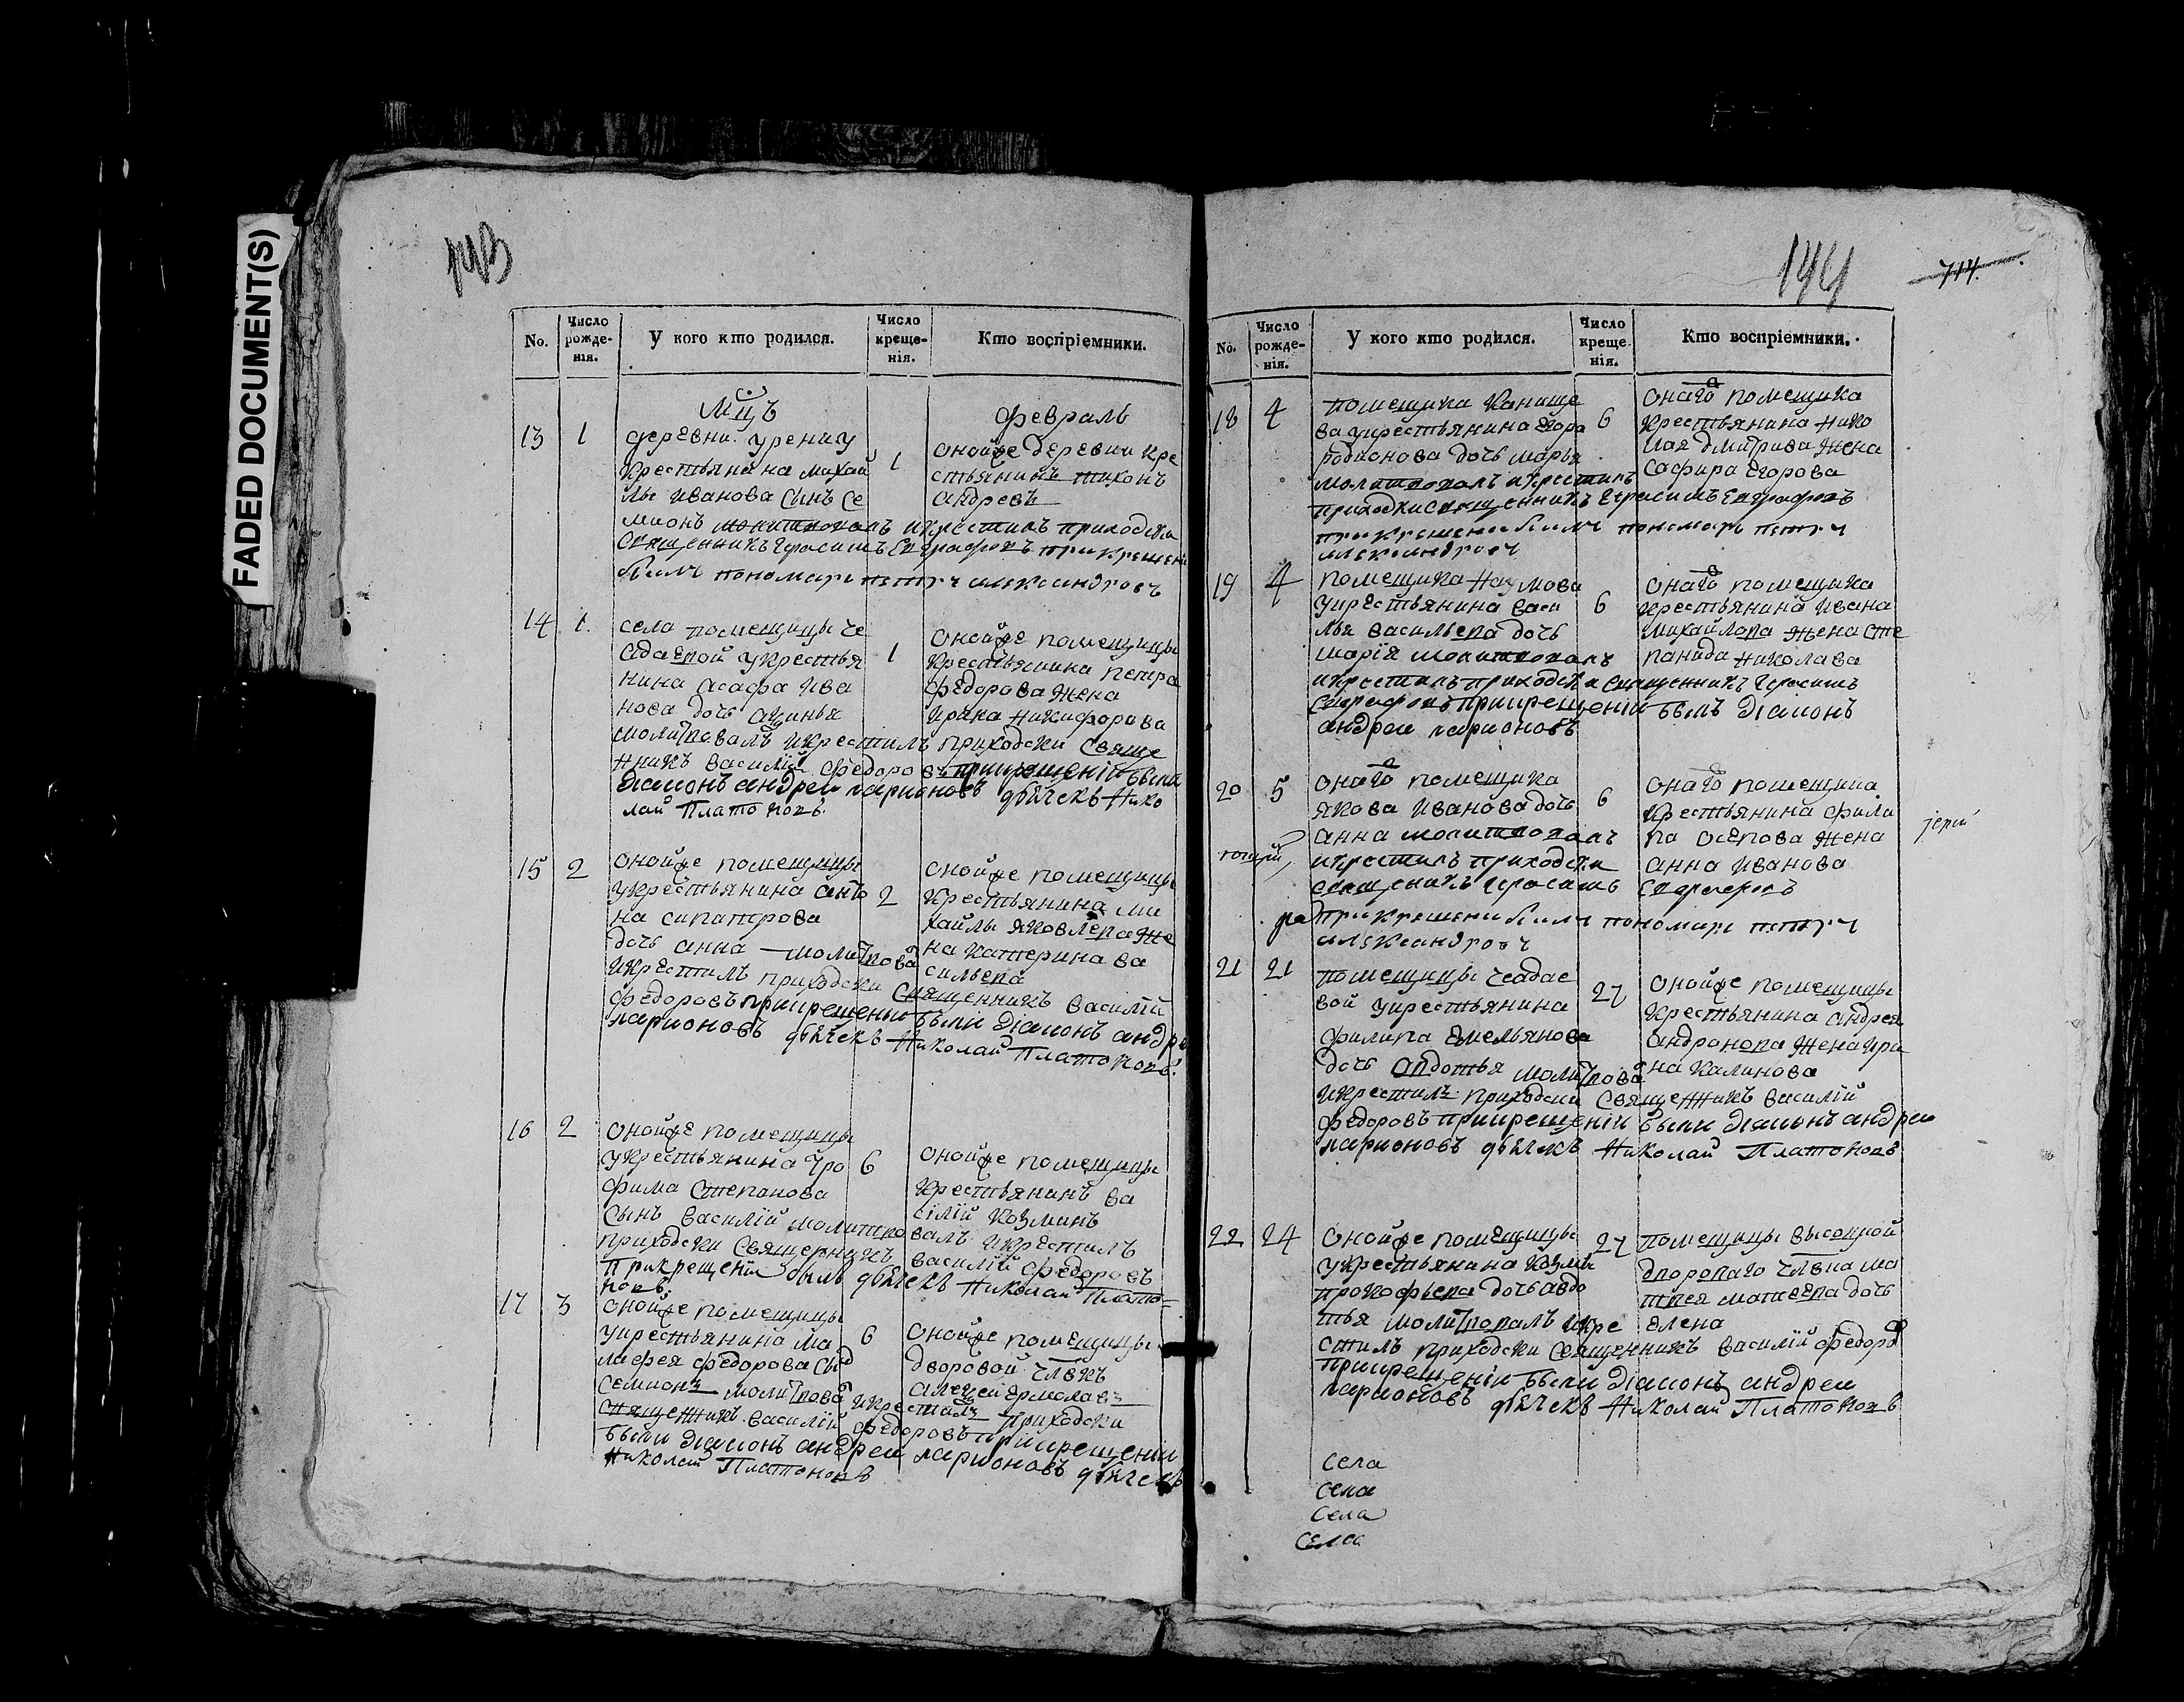 FADED DOCUMENT(S)
143
No.
Число рожде-нія.
У кого кто родился.
Число креще-нія.
Кто воспріемники.
Мцъ
февраль
13
1
деревни урениу
крестьянина михай
лы иванова сынъ се
мионъ молитвовалъ икрестилъ приходски
священникъ герасимъ Евграфовъ прикрещени
былъ пономарь петръ александровъ
1
онойже деревни кре
стьянинъ тихонъ
андревъ
14
1.
села помещицы че
адаевой укрестья
нина асафа ива
нова дочь аксинья
молитвовалъ икрестилъ приходски свяще
нникъ василій федоровъ прикрещеніи были
діаконъ андреи ларионовъ дьячекъ Нико
лай Платоновъ.
1
онойже помещицы
крестьянина петра
федорова жена
ирина никифорова
15
2
онойже помещицы
укрестьянина анъ
на сипатрова
дочь анна молитвова
икрестилъ приходски священникъ василій
федоровъ прикрещеньи были діаконъ андре
ларионовъ дьячекъ Николай Платоновъ.
2
онойже помещицы
крестьянина ми
хайлы яковлева же
на катерина ва
сильева
16
2
онойже помещицы
укрестьянина тро
фима степанова
сынъ василій молитвовалъ икрестилъ
приходски священникъ василій федоровъ
Прикрещеніи былъ дьячекъ Николай Плато=
новъ.
6
онойже помещицы
крестьянинъ ва
силій козминъ
17
3
онойже помещицы
укрестьянина ма
лафея федорова сынъ
семионъ молитвова икрестилъ приходски
священникъ василій федоровъ прикрещеніи
были діаконъ андреи ларионовъ дьячекъ
Николай Платоновъ
6
онойже помещицы
дворовой члвкъ
алексей ермолавъ
144
714.
No.
Число рожде-нія.
У кого кто родился.
Число креще-нія.
Кто воспріемники.
18
4
помещика Канище
ва укрестьянина егора
родионова дочь марья
молитвовалъ икрестилъ
приходски священникъ Герасимъ Евграфовъ
прикрещени былъ пономарь петръ
александровъ
6
онаго помещика
крестьянина нико
лая дмитрива жена
софира егорова
19
4
помещика Наумова
укрестьянина васи
лья васильева дочь
марія молитвовалъ
икрестилъ приходски священникъ Герасимъ
Евграфовъ прикрещеніи былъ діаконъ
андреи ларионовъ
6
онаго помещика
крестьянина ивана
михайлова жена сте
панида николава
20
5
онаго помещика
якова иванова дочь
анна молитвовалъ
икрестилъ приходски
священникъ герасимъ Евграфовъ
прикрещени былъ пономарь петръ
александровъ
6
онаго помещика
крестьянина фили
па осепова жена
анна иванова
іереи
21
21
помещицы чеадае
вой укрестьянина
филипа емельянова
дочь авдотья молитвова
икрестилъ приходски священникъ василій
федоровъ прикрещеніи были діаконъ андреи
ларионовъ дьячекъ Николай Платоновъ
27
онойже помещицы
крестьянина андрея
андронова жена ири
на калинова
22
24
онойже помещицы
укрестьянина козмы
прокофьева дочь авдо
тья молитвовалъ икре
стилъ приходски священникъ василій федоро
прикрещеніи были діаконъ андреи
ларионовъ дьячекъ Николай Платоновъ
27
помещицы высоцкой
двороваго члвка ма
твея матвева дочь
елена
села
села
села
села